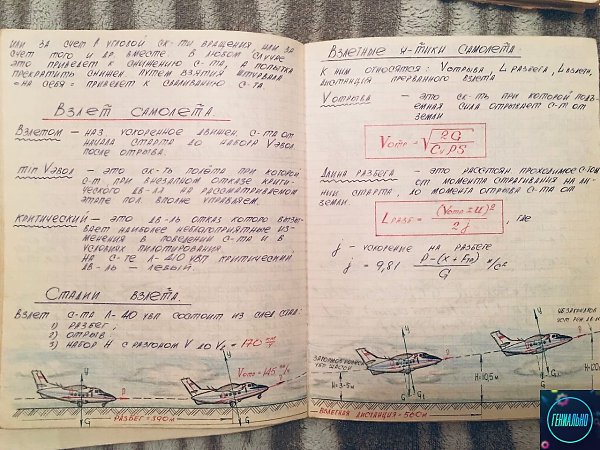 или за счет ↑ угловой ск-ти вращения, или за
счет того и др. вместе. В любом случае
это приведет к снижению с-та, а попытка
прекратить снижен. путем взятия штурвала
«на себя» приведет к сваливанию с-та.
Взлет самолета
Взлетом – наз. ускоренное движен. с-та от
начала старта до набора Vэвол.
после отрыва.
min Vэвол – это ск-ть полета при которой
с-т при внезапном отказе крити-
ческого дв-ля на рассматриваемом
этапе пол. вполне управляем.
Критический – это дв-ль отказ которого вызы-
вает наиболее неблагоприятные из-
менения в поведении с-та и в
условиях пилотирования.
На с-те Л-410 УВП критический
дв-ль – левый.
Стадии взлета.
Взлет с-та Л-40 УВП состоит из след. стад.:
1) разбег;
2) отрыв;
3) набор H с разгоном V до V₂ = 170
Vотр = 145
Y
P
G
Разбег = 390м
Взлетные х-тики самолета
К ним относятся: Vотрыва, L разбега, L взлетн,
дистанция прерванного взлета
Vотрыва – это ск-ть при которой подъ-
емная сила отрывает с-т от
земли
Vотр = √2G / CyρS
Длина разбега – это расстоян. проходимое с-том
от момента страгивания на ли-
нии старта, до момента отрыва с-та от
земли.
L разб = (Vотр ± U)² / 2j, где
j – ускорение на разбеге
j = 9,81 P-(X+Fтр) / G м/с²
H=3-5м
H=10,5м
Взлетная дистанция = 560м
ГЕНИАЛЬНО